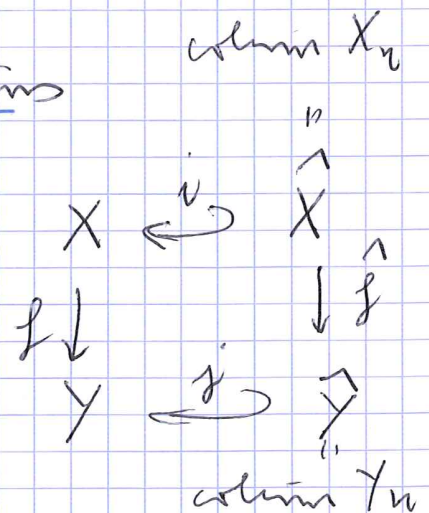 colim X_n
ins
"
X i X̂
f f̂
Y j Ŷ
"
colim Y_n